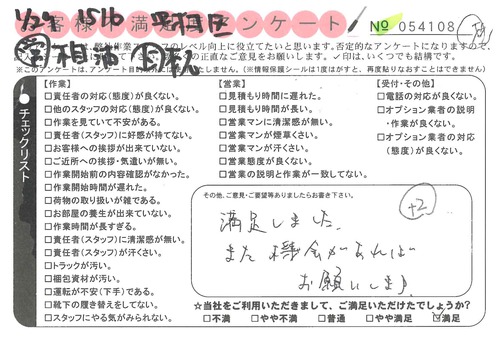 1/29 1516 平日区
お客様 満足 アンケート
№ 054108
弊社作業スタッフのレベル向上に役立てたいと思います。否定的なアンケートになりますので、
の正直なご意見をお願いします。✓印は、いくつでも結構です。
※このアンケートは、アンケート目的以外には使いたしません。(※情報保護シールは1度はがすと、再度貼りなおすことはできません)
チェックリスト
【作業】
□責任者の対応(態度)が良くない。
□他のスタッフの対応(態度)が良くない。
□作業を見ていて不安がある。
□責任者(スタッフ)に好感が持てない。
□お客様への挨拶が出来ていない。
□ご近所への挨拶・気遣いが無い。
□作業開始前の内容確認がなかった。
□作業開始時間が遅れた。
□荷物の取り扱いが雑である。
□お部屋の養生が出来ていない。
□作業時間が長すぎる。
□責任者(スタッフ)に清潔感が無い。
□責任者(スタッフ)が汗くさい。
□トラックが汚い。
□梱包資材が汚い。
□運転が不安(下手)である。
□靴下の履き替えをしてない。
□スタッフにやる気がみられない。
【営業】
□見積もり時間に遅れた。
□見積もり時間が長い。
□営業マンに清潔感が無い。
□営業マンが煙草くさい。
□営業マンが汗くさい。
□営業態度が良くない。
□営業の説明と作業が一致してない。
【受付・その他】
□電話の対応が良くない。
□オプション業者の説明
・作業が良くない。
□オプション業者の対応
(態度)が良くない。
その他、ご意見・ご要望等ありましたらお書き下さい。
+2
満足しました。
また機会があれば
お願いします
☆当社をご利用いただきまして、ご満足いただけたでしょうか?
□不満 □やや不満 □普通 □やや満足 ☑満足